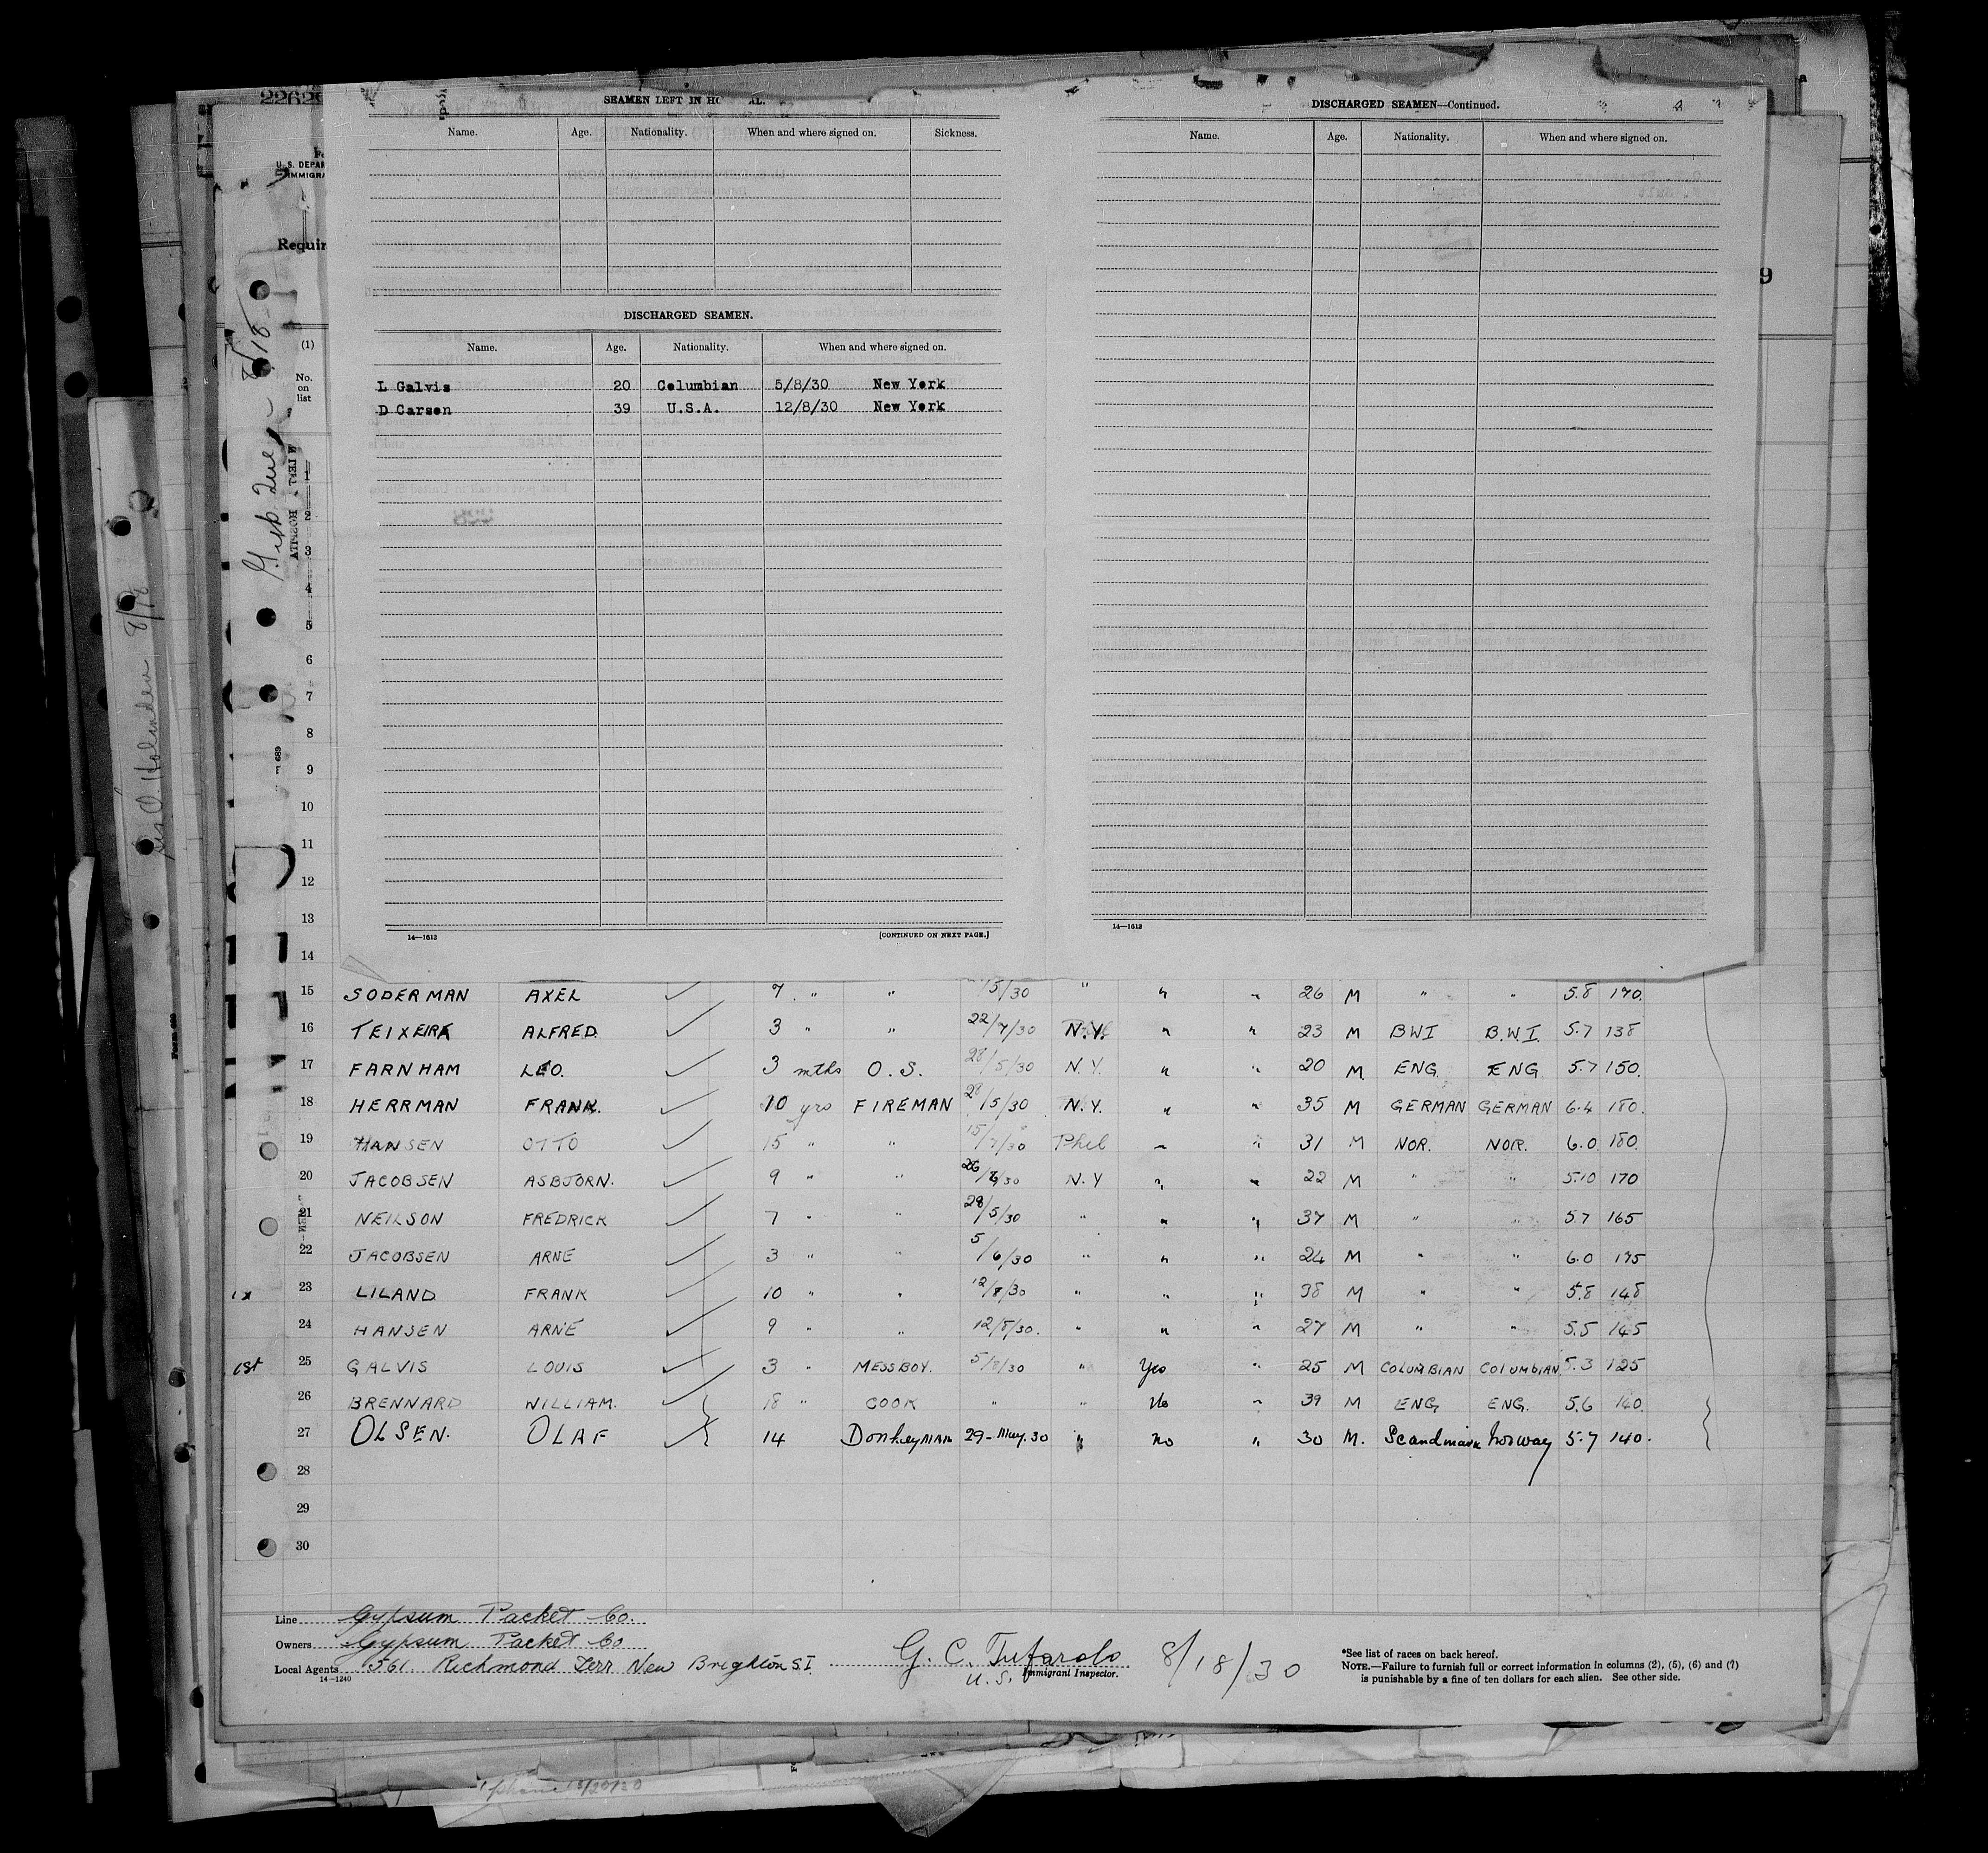 2262
SEAMEN LEFT IN HO AL.
Name. Age. Nationality. When and where signed on. Sickness.
DISCHARGED SEAMEN.
Name. Age. Nationality. When and where signed on.
L Galvis 20 Columbian 5/8/30 New York
D Carson 39 U.S.A. 12/8/30 New York
14—1613 [CONTINUED ON NEXT PAGE.]
DISCHARGED SEAMEN—Continued.
Name. Age. Nationality. When and where signed on.
14—1613
9
U. S. DEPAR
IMMIGRA
Requir
(1)
No.
on
list
1
2
3
4
5
6
7
8
9
10
11
12
13
14
15 SODERMAN AXEL ✓ 7 " " /5/30 " " " 26 M " " 5.8 170.
16 TEIXEIRA ALFRED. ✓ 3 " " 22/7/30 N.Y. " " 23 M BWI B.W.I. 5.7 138
17 FARNHAM LEO. ✓ 3 mths O.S. 28/5/30 N.Y. " " 20 M. ENG. ENG 5.7 150.
18 HERRMAN FRANK. ✓ 10 yrs FIREMAN 28/5/30 N.Y. " " 35 M GERMAN GERMAN 6.4 180.
19 HANSEN OTTO ✓ 15 " " 15/7/30 Phil " " 31 M NOR. NOR. 6.0 180.
20 JACOBSEN ASBJORN. ✓ 9 " " 26/6/30 N.Y " " 22 M " " 5.10 170
21 NEILSON FREDRICK ✓ 7 " " 28/5/30 " " " 37 M " " 5.7 165
22 JACOBSEN ARNE ✓ 3 " " 5/6/30 " " " 24 M " " 6.0 175
23 LILAND FRANK ✓ 10 " " 12/8/30 " " " 38 M " " 5.8 148
24 HANSEN ARNE ✓ 9 " " 12/8/30. " " " 27 M " " 5.5 145
1st 25 GALVIS LOUIS ✓ 3 " MESSBOY. 5/8/30 " Yes " 25 M COLUMBIAN COLUMBIAN 5.3 125
26 BRENNARD WILLIAM. ✓ 18 " COOK " " No " 39 M ENG ENG. 5.6 140.
27 OLSEN. OLAF ✓ 14 Donkeyman 29-May.30 " no " 30 M. Scandinavn Norway 5.7 140.
28
29
30
Line Gypsum Packet Co.
Owners Gypsum Packet Co
Local Agents 561 Richmond Terr New Brighton S.I.
14—1240
G. C. Tufarolo 8/18/30
U.S. Immigrant Inspector.
*See list of races on back hereof.
NOTE.—Failure to furnish full or correct information in columns (2), (5), (6) and (7)
is punishable by a fine of ten dollars for each alien. See other side.
Form 689